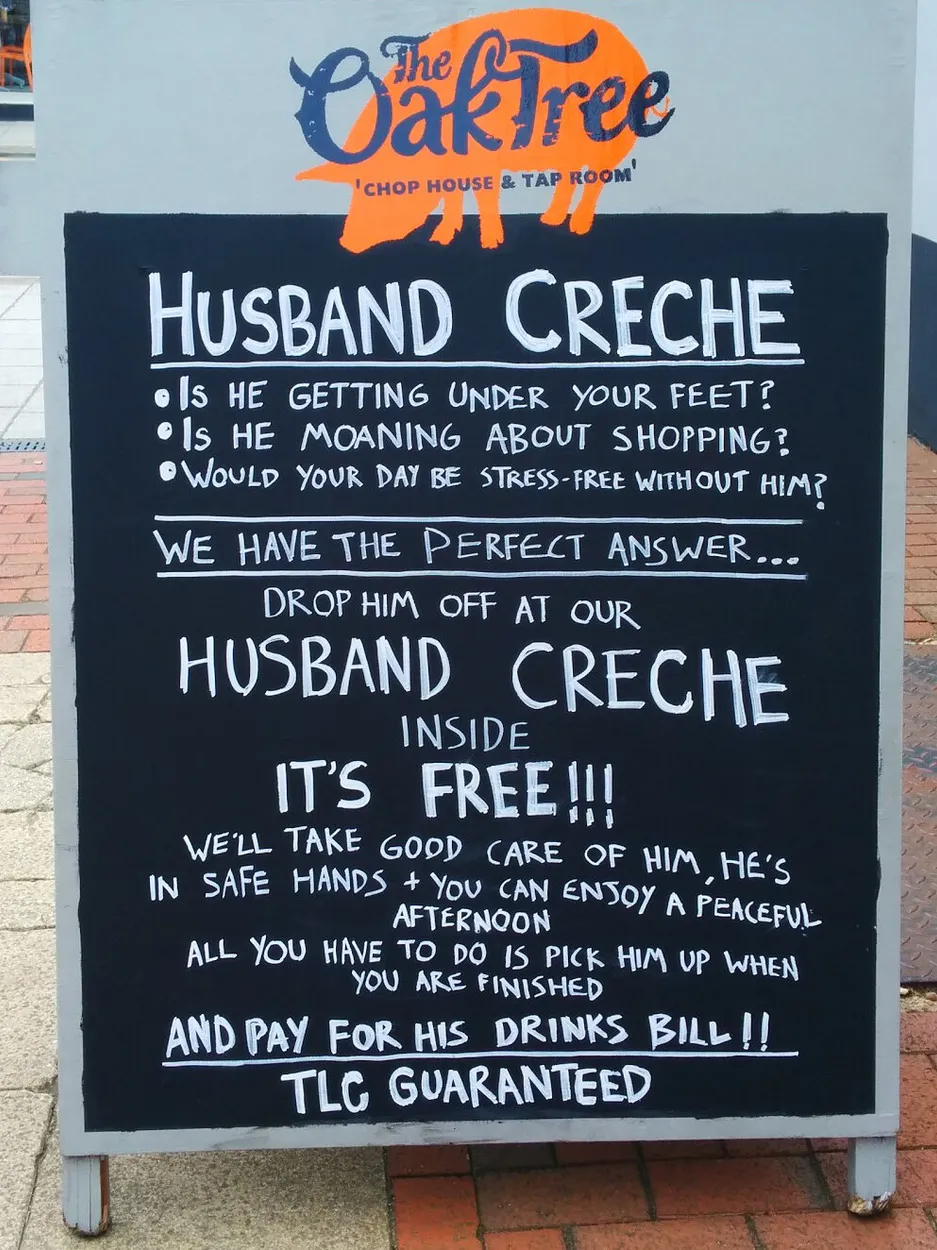 The
Oak Tree
'CHOP HOUSE & TAP ROOM'
HUSBAND CRECHE
• IS HE GETTING UNDER YOUR FEET?
• IS HE MOANING ABOUT SHOPPING?
• WOULD YOUR DAY BE STRESS-FREE WITHOUT HIM?
WE HAVE THE PERFECT ANSWER...
DROP HIM OFF AT OUR
HUSBAND CRECHE
INSIDE
IT'S FREE!!!
WE'LL TAKE GOOD CARE OF HIM, HE'S
IN SAFE HANDS + YOU CAN ENJOY A PEACEFUL
AFTERNOON
ALL YOU HAVE TO DO IS PICK HIM UP WHEN
YOU ARE FINISHED
AND PAY FOR HIS DRINKS BILL!!
TLC GUARANTEED